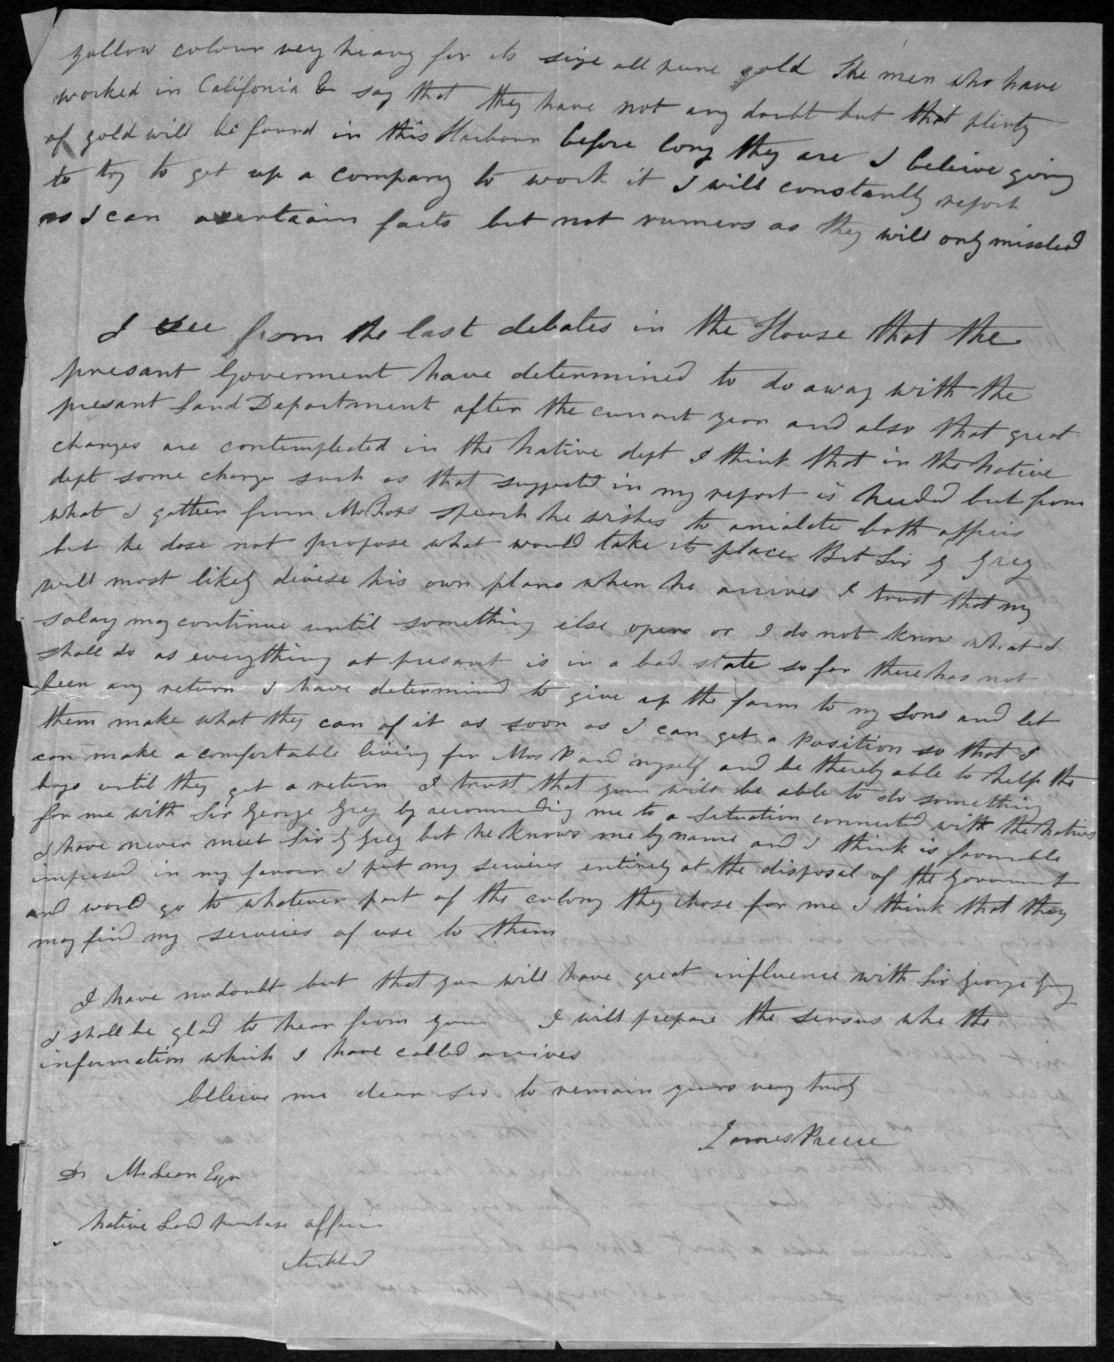 yallow colour very heavy for its size all pure gold The men who have
worked in Califonia & say that they have not any doubt but that plinty
of gold will be found in this Harbour before long they are I beleive going
to try to get up a company to work it I will constantly report
as I can acertaain facts but not rumers as they will only misslead
I see from the last debates in the House that the
presant Goverment have determined to do away with the
presant Land Department after the currant year and also that great
changes are contemplated in the Native dept I think that in the Native
dept some change such as that suggested in my report is needed but from
what I gatther from Mr Fox's speech he wishes to anialate both offices
but he dose not propose what would take its place But Sir G Grey
will most likely devise his own plans when he arrives I trust that my
salary may continue until something else opens or I do not know what I
shall do as everything at present is in a bad state so far there has not
been any return I have determined to give up the farm to my Sons and let
them make what they can of it as soon as I can get a position so that I
can make a comfortable living for Mrs P and myself and be thereby able to help the
boys until they get a return I trust that you will be able to do something
for me with Sir George Grey by recomending me to a situation connected with the natives
I have never meet Sir G Grey but he knows me by name and I think is favourable
impresed in my favour I put my services entirely at the disposal of the Goverment
and would go to whatever part of the colony they chose for me I think that they
may find my services of use to them
I have nodoubt but that you will have great influence with Sir George Grey
I shall be glad to hear from you I will prepare the Sensus whe the
information which I have called arrives
beleive me dear Sir to remain yours very truly
James Preece
D McLean Esqr
Native Land Purchase office
Auckld